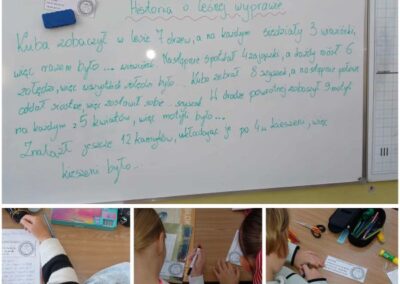 Historia o leśnej wyprawie
Kuba zobaczył w lesie 7 drzew, a na każdym siedziały 3 wiewiórki,
więc razem było ... wiewiórek. Następnie spotkał 4 zające, a każdy miał 6
żołędzi, więc wszystkich żołędzi było ... Kuba zebrał 8 szyszek, a następnie połowę
oddał siostrze, więc zostawił sobie ... szyszek. W drodze powrotnej zobaczył 9
na każdym z 5 kwiatów, więc motyli było ...
Znalazł jeszcze 12 kamyków, układając je po 4 w kieszeni, więc
kieszeni było ...